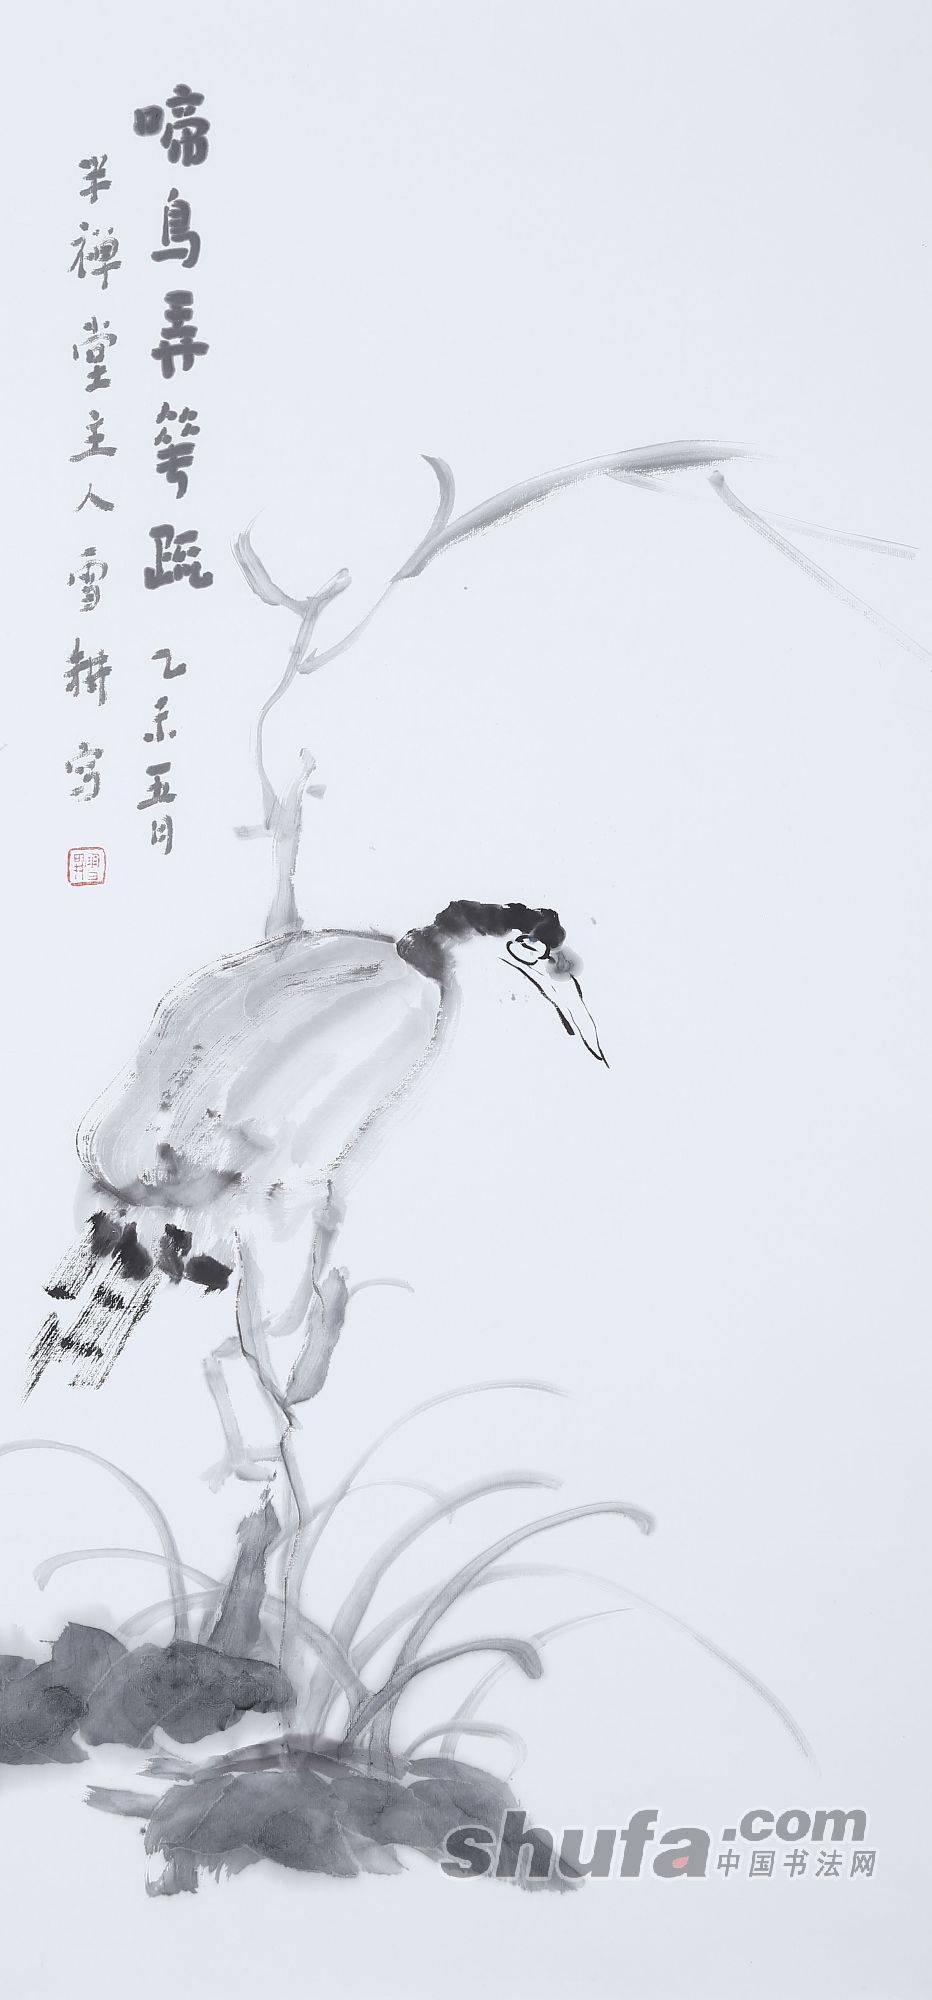 啼鳥弄筝疏 乙未五月
半禅堂主人雪耕寫
shufa.com
中国书法网